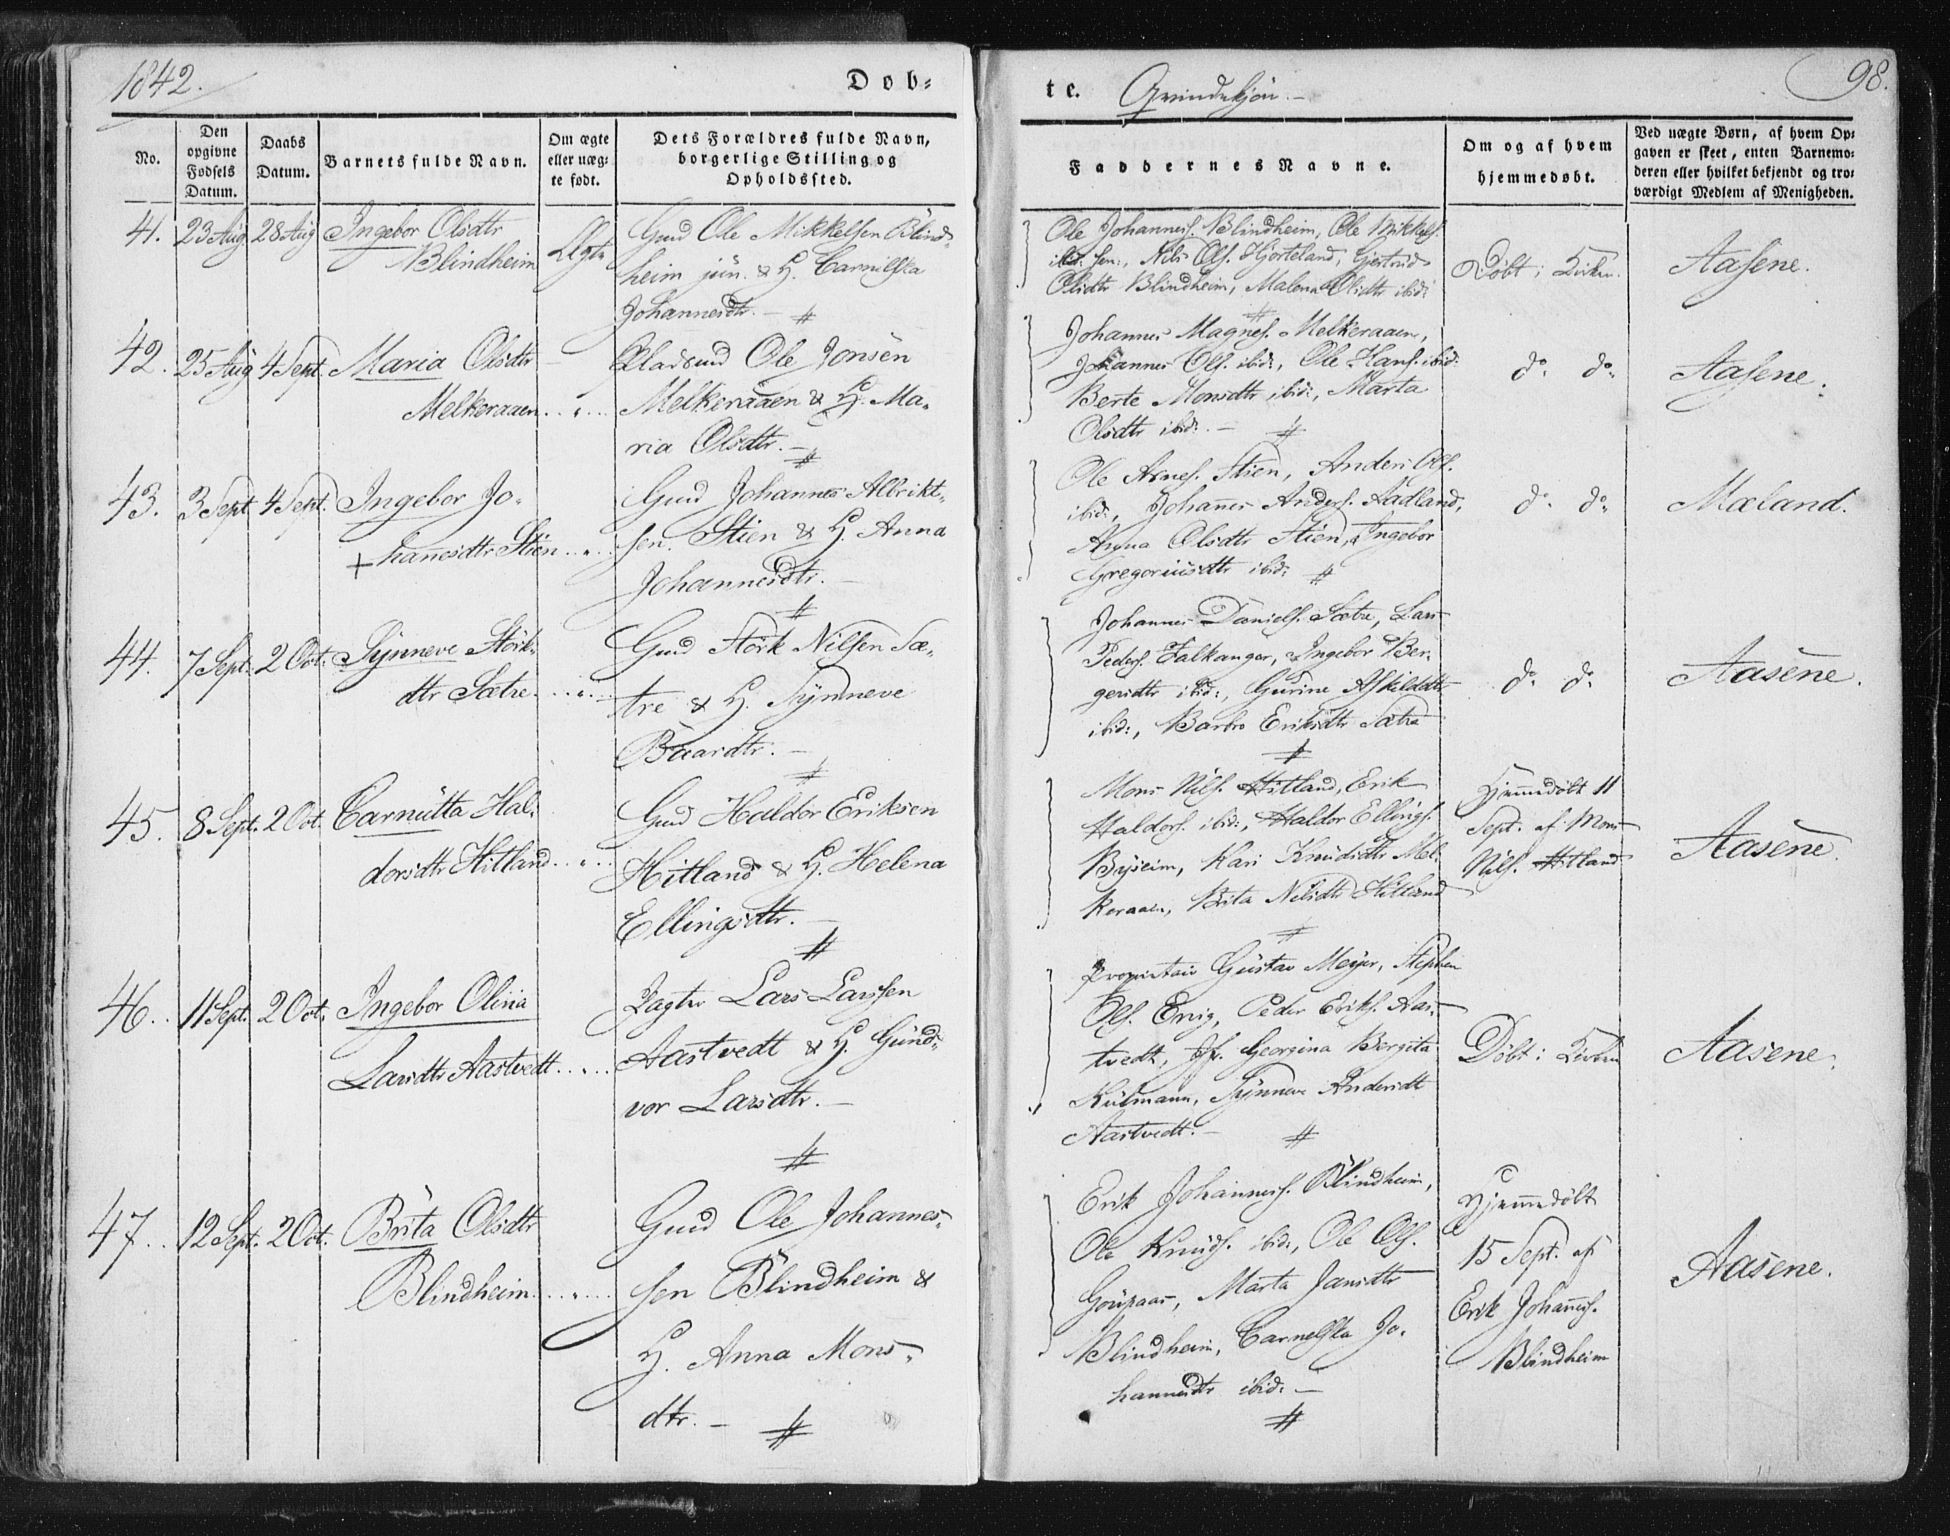 1842.
Dob-
te.
Qvindekjön.
98.
No.
Den opgivne Fødsels Datum.
Daabs Datum.
Barnets fulde Navn.
Om ægte eller uæg- te født.
Dets Forældres fulde Navn, borgerlige Stilling og Opholdssted.
Faddernes Navne.
Om og af hvem hjemmedøbt.
Ved uægte Børn, af hvem Op- gaven er skeet, enten Barnemo- deren eller hvilket bekjendt og tro- værdigt Medlem af Menigheden.
41. 23 Aug 28 Aug Ingebor Olsdtr
Blindheim
Ægte
Gmd Ole Mikkelsen Blind-
heim jün. & H. Carnilska
Johannesdtr. -
Ole Johannes. Blindheim, Ole Mikkels.
ibid: sen., Nils Ols. Hjorteland, Gjertrud
Olsdtr Blindheim, Malena Olsdtr ibid:
Döbt i Kirken.
Aasene.
42. 25 Aug 4 Sept. Maria Olsdtr
Melkeraaen
"
Pladsmd Ole Jonsen
Melkeraaen & H. Ma-
ria Olsdtr. -
Johannes Magnes. Melkeraaen,
Johannes Ols. ibid:, Ole Hans. ibid:
Berte Monsdtr ibid:, Marta
Olsdtr ibid: -
do. do.
Aasene.
43. 3 Sept 4 Sept. Ingebor Jo-
+ hanesdtr Stien
"
Gmd Johannes Albrikt-
sen Stien & H. Anna
Johannesdtr. -
Ole Arnes. Stien, Anders Ols.
ibid:, Johanes Anders. Aadland,
Anna Olsdtr Stien, Ingebor
Gregoriusdtr ibid:
do. do.
Mæland.
44. 7 Sept. 2 Oct. Synneve Störk-
dtr Sætre.
"
Gmd Störk Nilsen Sæ-
tre & H. Synneve
Baardtr. -
Johannes Daniels. Sætre, Lars
Peders. Falkanger, Ingebor Ber-
gesdtr ibid:, Gurine Askilddtr
ibid:, Barbro Eriksdtr Sætre
do. do.
Aasene.
45. 8 Sept. 2 Oct. Carnütta Hal-
dorsdtr Hitland
"
Gmd Haldor Eriksen
Hitland & H. Helena
Ellingsdtr. -
Mons Nils. Hitland, Erik
Haldors. ibid:, Haldor Ellings.
Byseim, Kari Knudsdtr Mel-
keraaen, Brita Nilsdtr Hitland
Hjemmedöbt 11
Sept. af Mons
Nils. Hitland
Aasene.
46. 11 Sept. 2 Oct. Ingebor Olina
Larsdtr Aastvedt
"
Jagter Lars Larssen
Aastvedt & H. Günd-
vor Larsdtr. -
Proprietair Güstav Meyer, Stephen
Ols. Ervig, Peder Eriks. Aas-
tvedt, Jf. Georgina Bergita
Külmann, Synneve Andersdt
Aastvedt. -
Döbt i Kirken
Aasene.
47. 12 Sept. 2 Oct. Brita Olsdtr
Blindheim
"
Gmd Ole Johannes-
sen Blindheim &
H. Anna Mons-
dtr. -
Erik Johannes. Blindheim,
Ole Knuds. ibid:, Ole Ols.
Marta Jansdtr
Blindheim, Carnelska Jo-
hannesdtr ibid: -
Hjemmedöbt
15 Sept. af
Erik Johanes.
Blindheim
Aasene.